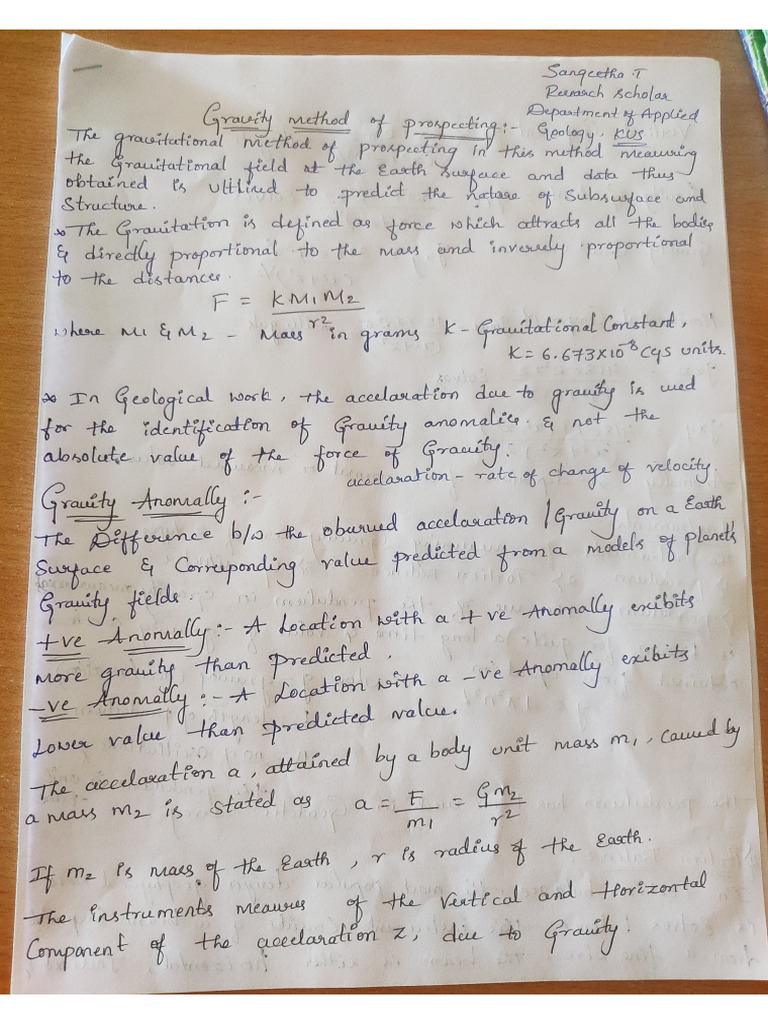 Sangeetha.T
Research Scholar
Department of Applied
Geology, KUS
Gravity method of prospecting:-
The gravitational method of prospecting in this method measuring
the Gravitational field at the Earth surface and data thus
obtained is utilized to predict the nature of Subsurface and
Structure.
* The Gravitation is defined as force which attracts all the bodies
& directly proportional to the mass and inversely proportional
to the distances.
F = KM1M2
r2
where M1 & M2 - Mass in grams K - Gravitational Constant,
K = 6.673x10-8 cgs units.
* In Geological work, the accelaration due to gravity is used
for the identification of Gravity anomalies & not the
absolute value of the force of Gravity.
accelaration - rate of change of velocity.
Gravity Anomally :-
The Difference b/w the observed accelaration / Gravity on a Earth
Surface & Corresponding value predicted from a models of planet's
Gravity fields.
+ve Anomally :- A Location with a +ve Anomally exibits
more gravity than predicted.
-ve Anomally :- A Location with a -ve Anomally exibits
Lower value than predicted value.
The accelaration a, attained by a body unit mass m1, caused by
a mass m2 is stated as a = F/m1 = Gm2/r2
If m2 is mass of the Earth, r is radius of the Earth.
The instruments measures of the Vertical and Horizontal
Component of the accelaration z, due to Gravity.